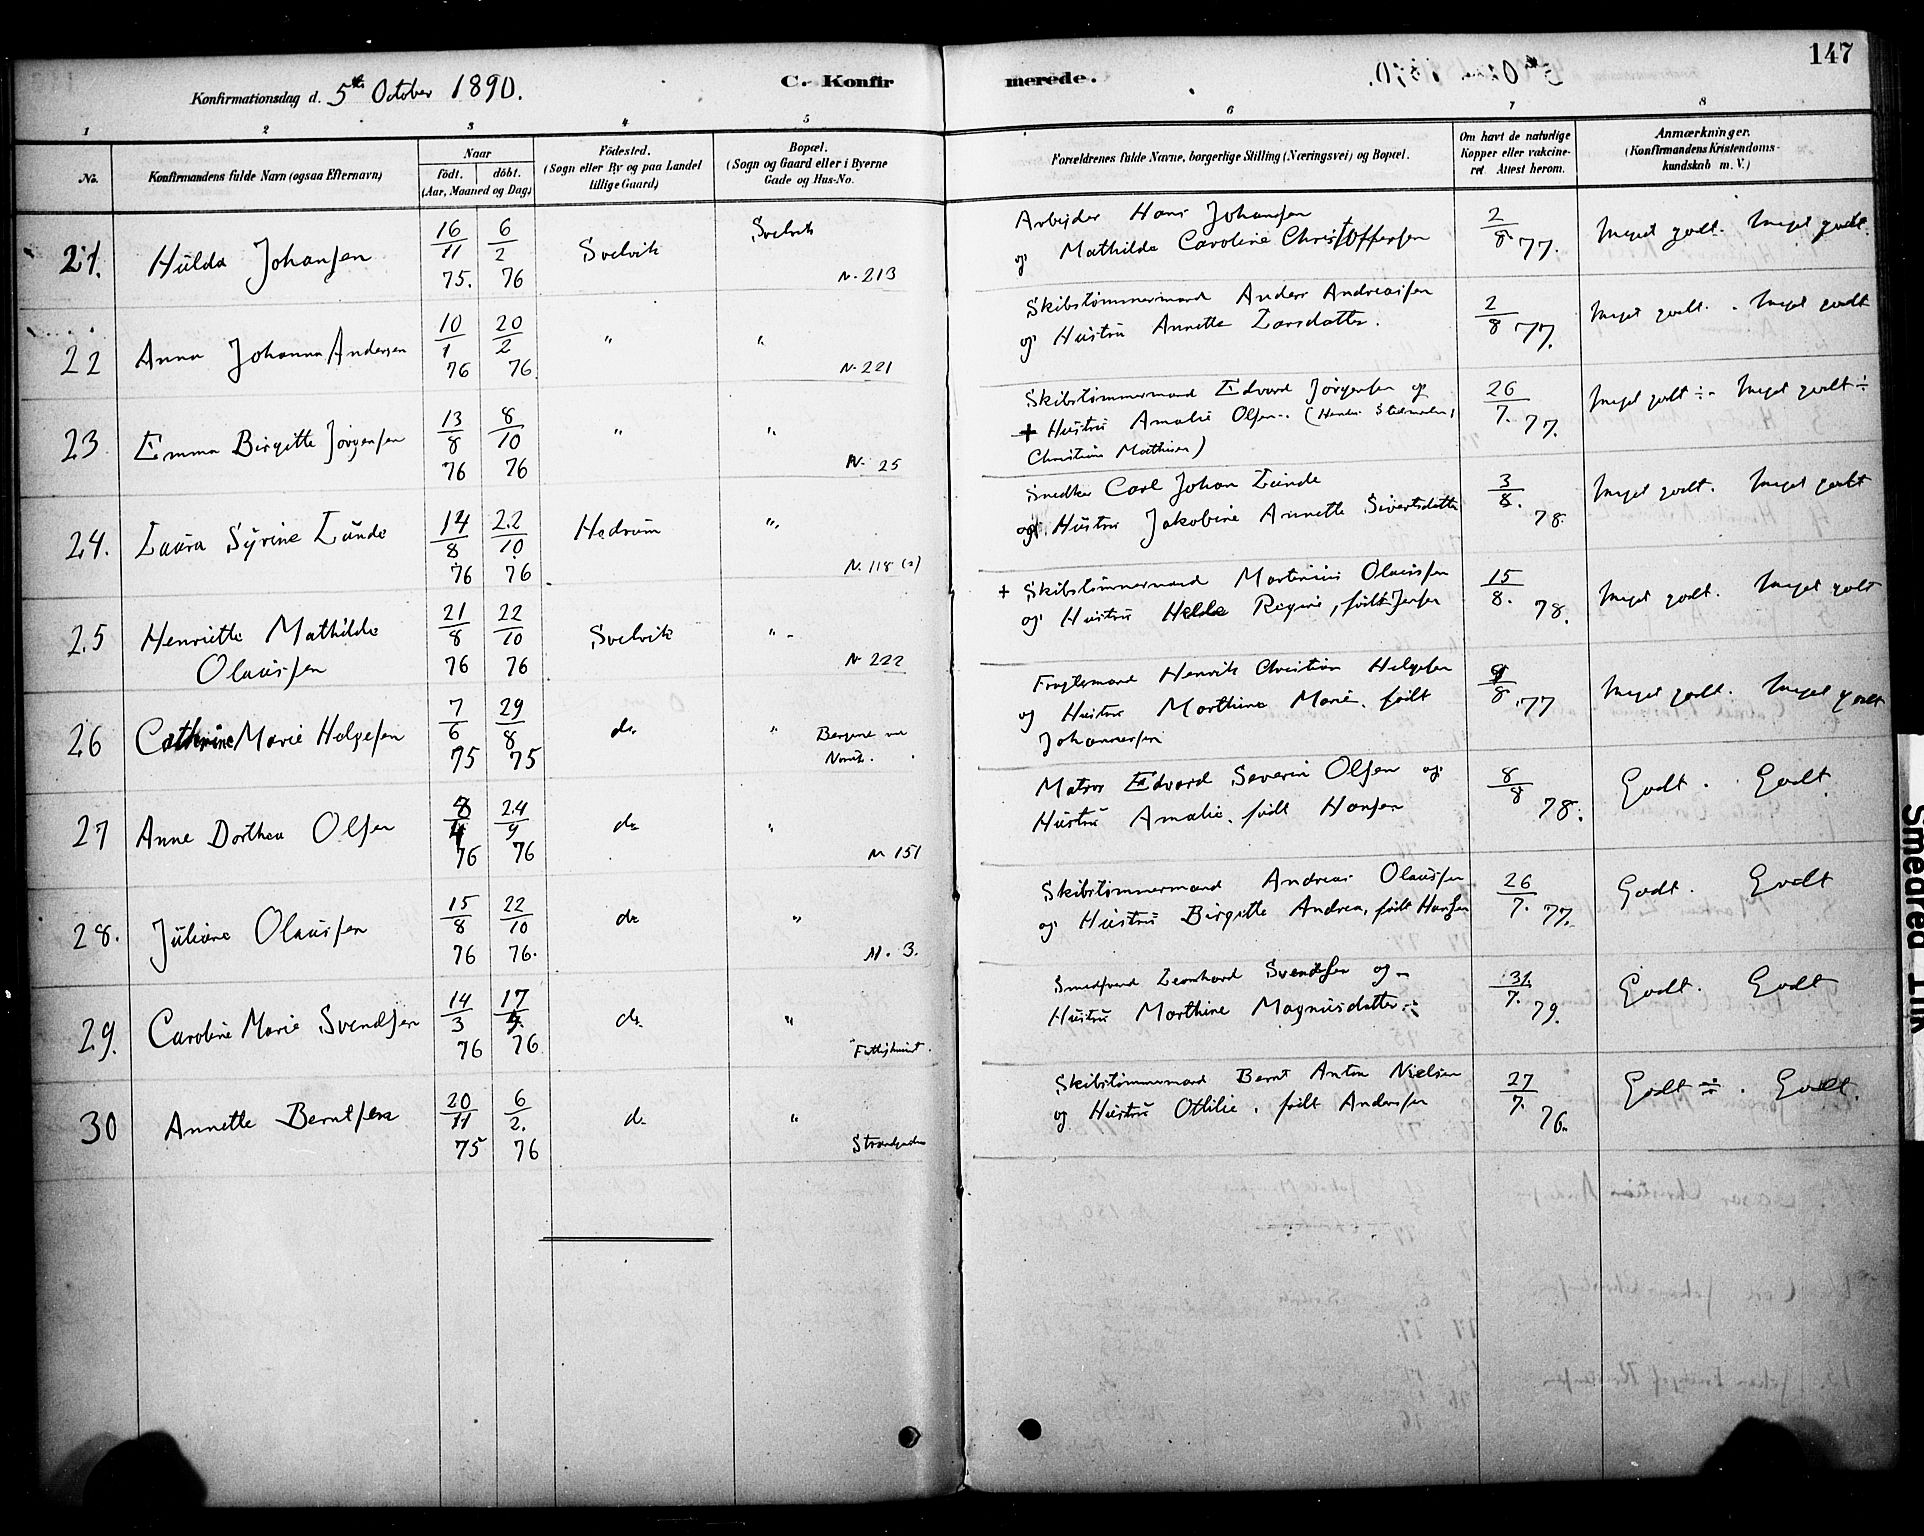 147
Konfirmationsdag d. 5te October 1890.
C. Konfirmerede.
1 2 3 4 5 6 7 8
No.
Konfirmandens fulde Navn (ogsaa Efternavn)
Naar
födt. döbt.
(Aar, Maaned og Dag)
Födested.
(Sogn eller By og paa Landet
tillige Gaard)
Bopæl.
(Sogn og Gaard eller i Byerne
Gade og Hus-No.
Forældrenes fulde Navne, borgerlige Stilling (Næringsvei) og Bopæl.
Om havt de naturlige
Kopper eller vakcine-
ret. Attest herom.
Anmærkninger.
(Konfirmandens Kristendoms-
kundskab m. V.)
21. Hulda Johansen 16/11 75. 6/2 76 Svelvik Svelvik N. 213
Arbejder Hans Johansen
og Mathilde Caroline Christoffersen
2/8 77. Meget godt. Meget godt.
22 Anna Johanna Andersen 10/1 76 20/2 76 " " N. 221
Skibstømmermand Anders Andreassen
og Hustru Annette Larsdatter.
2/8 77. Meget godt. Meget godt
23 Emma Birgitte Jörgensen 13/8 76 8/10 76 " " N. 25
Skibstømmermand Edvard Jörgensen og
+ Hustru Amalie Olsen.
Christine Mathisen)
26/7. 77. Meget godt ÷ Meget godt ÷
24. Laura Syrine Lunde 14/8 76 22/10 76 Hedrum " N. 118 (a)
Carl Johan Lunde
og Hustru Jakobine Annette Sivertsdatter
3/8. 78. Meget godt. Meget godt
25 Henriette Mathilde
Olaussen 21/8 76 22/10 76 Svelvik " N 222
+ Skibstømmermand Martinius Olaussen
og Hustru Helda Regine, født Jensen
15/8. 78. Meget godt. Meget godt
26 Cathrine Marie Helgesen 7/6 75 29/8 75 do "
Fragtemand Henrik Christian Helgesen
og Hustru Marthine Marie, født
Johannessen
9/8 77 Meget godt. Meget godt
27 Anne Dorthea Olsen 8/4 76 24/9 76 do " N 151
Matros Edvard Severin Olsen og
Hustru Amalie, født Hansen
8/8 78. Godt. Godt.
28. Juliane Olaussen 15/8 76 22/10 76. do " N. 3.
Skibstømmermand Andreas Olaussen
og Hustru Birgitte Andrea, født Hansen
26/7. 77. Godt. Godt
29. Caroline Marie Svendsen 14/3 76 17/4 76 do "
Smedsvend Leonhard Svendsen og
Hustru Marthine Magnusdatter
31/7. 79. Godt. Godt
30 Annette Berntsen 20/11 75 6/2. 76 do "
Strandgaden
Skibstømmermand Bernt Anton Nielsen
og Hustru Othilie, født Andersen
27/7. 76. Godt ÷. Godt.
Smedred